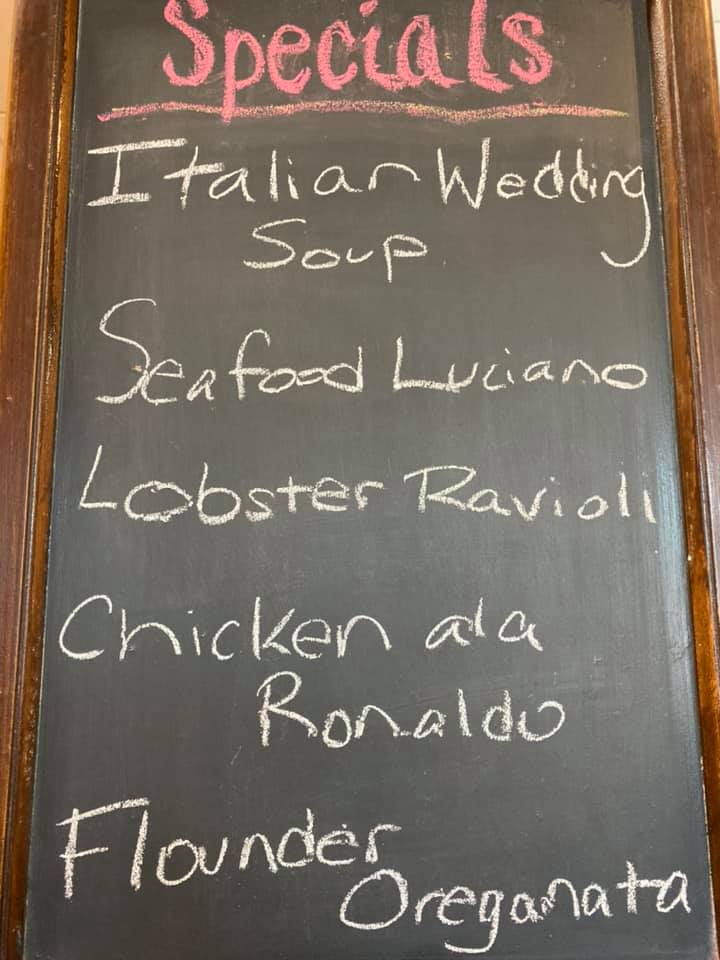 Specials
Italian Wedding
Soup
Seafood Luciano
Lobster Ravioli
Chicken ala
Ronaldo
Flounder
Oreganata